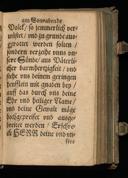 am Sonnabende
Volck / so jemmerlich ver-
wüstet / und zu grunde aus-
gerottet werden solten /
sondern vergib uns un-
sere Sünde / aus Väterli-
cher barmhertzigkeit / und
siehe uns deinem geringen
heufflein mit gnaden bey /
auff das durch uns deine
Ehr und heiliger Name /
und deine Gewalt möge
hochgepreiset und ausge-
breitet werden / Erhöre
HERR deine und un-
sere